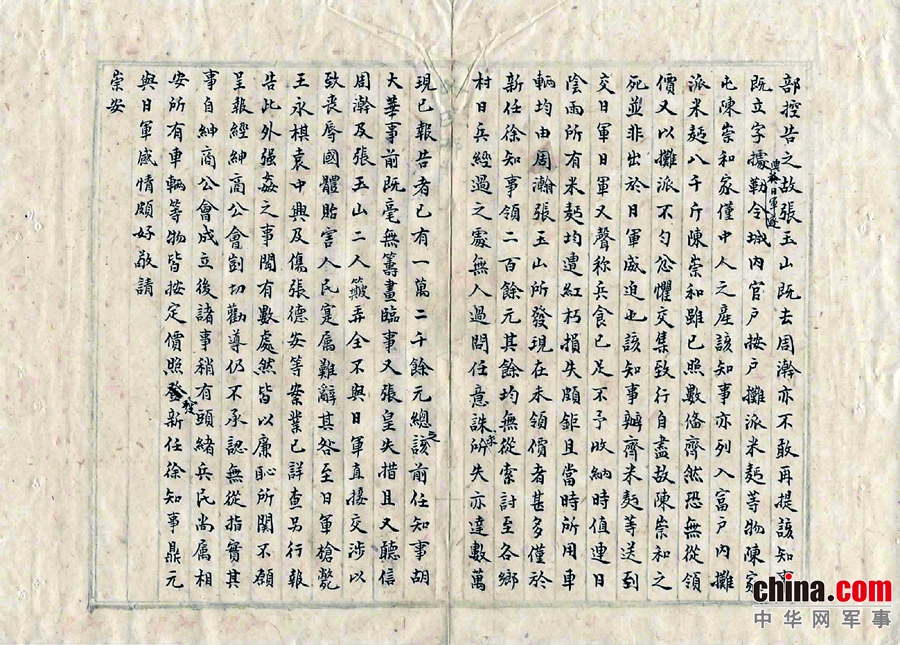 部控告之故張玉山既去周瀚亦不敢再提該知事
既立字據勒令城内官戶按戶攤派米麵等物陳家
與該日軍遂
屯陳崇和家僅中人之產該知事亦列入富戶内攤
派米麵八千斤陳崇和雖已照數俻齊然恐無從領
價又以攤派不勻忿懼交集致行自盡故陳崇和之
死並非出於日軍威迫也該知事辦齊米麵等送到
交日軍日軍又聲称兵食已足不予收納時值連日
陰雨所有米麵均遭紅朽損失頗鉅且當時所用車
輛均由周瀚張玉山所發現在未領價者甚多僅於
新任徐知事領二百餘元其餘均無從索討至各鄉
村日兵經過之處無人過問任意誅求所失亦達數萬
現已報告者已有一萬二千餘元總之該前任知事胡
大華事前既毫無籌畫臨事又張皇失措且又聽信
周瀚及張玉山二人簸弄全不與日軍直接交涉以
致喪辱國體貽害人民寔屬難辭其咎至日軍槍斃
王永棋袁中興及傷張德安等案業已詳查另行報
告此外强姦之事聞有數處然皆以廉恥所関不願
呈報經紳商公會剴切勸導仍不承認無從指實其
事自紳商公會成立後諸事稍有頭緒兵民尚屬相
安所有車輛等物皆按定價照發新任徐知事鼎元
與日軍感情頗好敬請
崇安
china.com
中华网军事